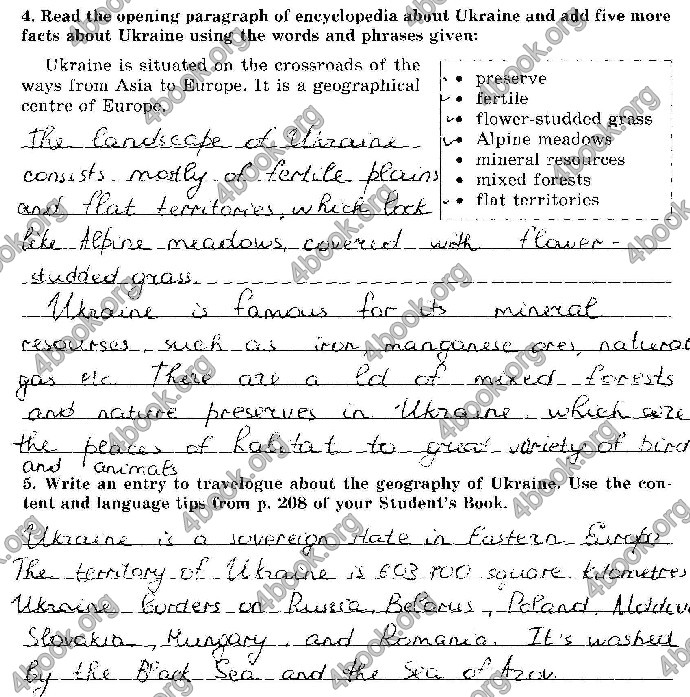 4. Read the opening paragraph of encyclopedia about Ukraine and add five more
facts about Ukraine using the words and phrases given:
Ukraine is situated on the crossroads of the
ways from Asia to Europe. It is a geographical
centre of Europe.
• preserve
• fertile
• flower-studded grass
• Alpine meadows
• mineral resources
• mixed forests
• flat territories
The landscape of Ukraine
consists mostly of fertile plains
and flat territories, which look
like Alpine meadows, covered with flower-
studded grass.
Ukraine is famous for its mineral
resourses, such as iron, manganese ores, natural
gas etc. There are a lot of mixed forests
and nature preserves in Ukraine which are
the places of habitat to great variety of bird
and animals
5. Write an entry to travelogue about the geography of Ukraine. Use the con-
tent and language tips from p. 208 of your Student's Book.
Ukraine is a sovereign state in Eastern Europe
The territory of Ukraine is 603 700 square kilometres
Ukraine borders on Russia, Belarus, Poland, Moldova
Slovakia, Hungary, and Romania. It's washed
by the Black Sea and the Sea of Azov.
4book.org